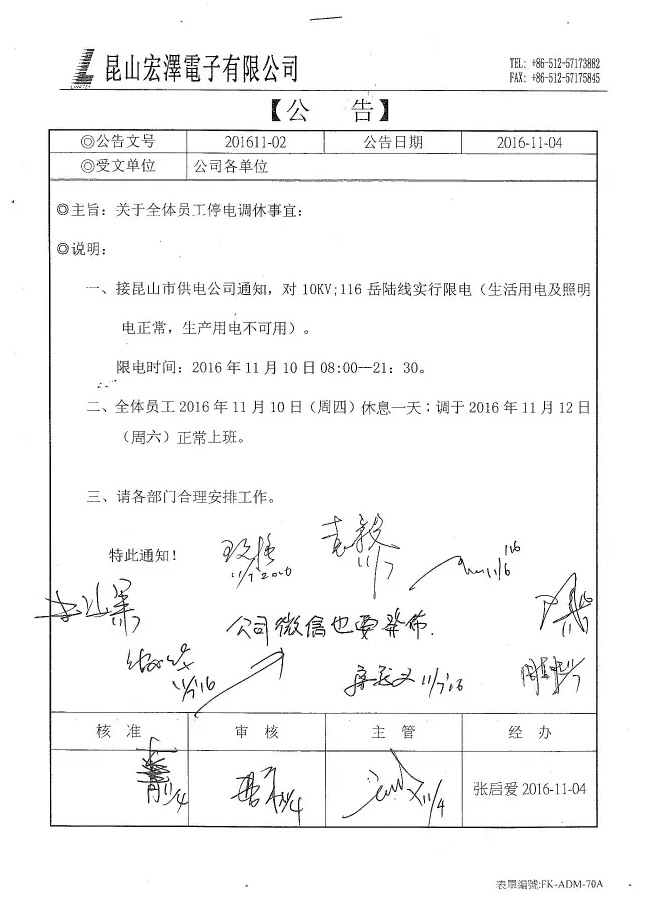 昆山宏澤電子有限公司
TEL: +86-512-57173882
FAX: +86-512-57175845
【公 告】
◎公告文号 201611-02 公告日期 2016-11-04
◎受文单位 公司各单位
◎主旨：关于全体员工停电调休事宜：
◎说明：
一、接昆山市供电公司通知，对 10KV;116 岳陆线实行限电（生活用电及照明
电正常，生产用电不可用）。
限电时间：2016 年 11 月 10 日 08:00—21：30。
二、全体员工 2016 年 11 月 10 日（周四）休息一天；调于 2016 年 11 月 12 日
（周六）正常上班。
三、请各部门合理安排工作。
特此通知！
11/7 2016
11/7
11/6
公司微信也要发布.
11/7'16
11/7'16
核 准 审 核 主 管 经 办
11/4 11/4 11/4 张启爱 2016-11-04
表單編號:FK-ADM-70A